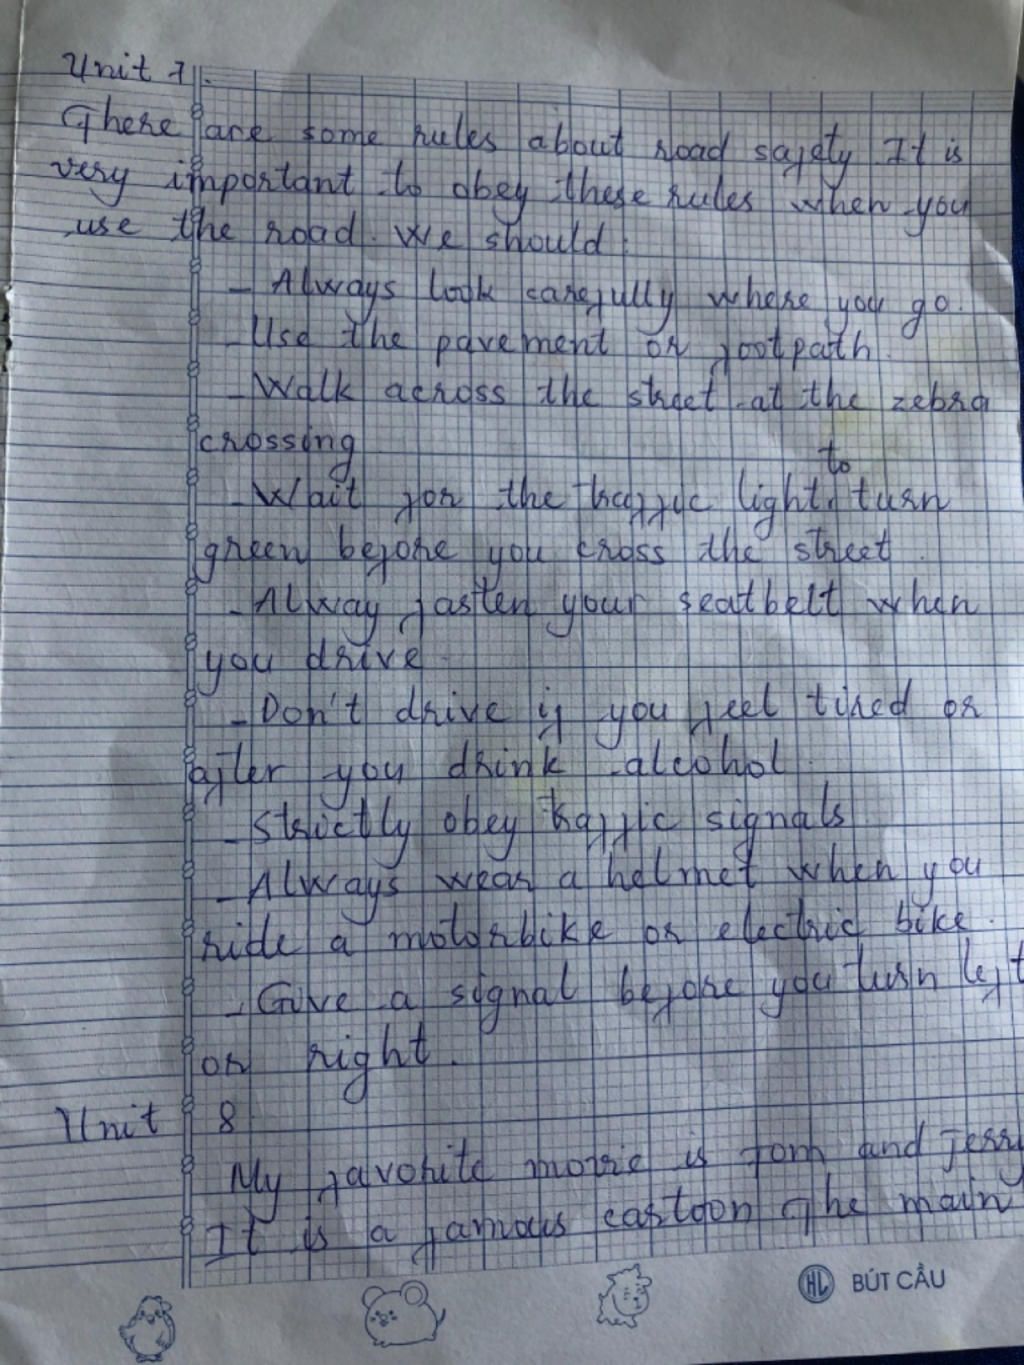 Unit 7.
There are some rules about road safety It is
very important to obey these rules when you
use the road. We should:
- Always look carefully where you go.
- Use the pavement or footpath.
- Walk across the street at the zebra
crossing
to
- Wait for the traffic light turn
green before you cross the street.
- Alway fasten your seatbelt when
you drive.
- Don't drive if you feel tired or
after you drink alcohol.
- Strictly obey traffic signals
- Always wear a helmet when you
ride a motorbike or electric bike.
- Give a signal before you turn left
or right.
Unit 8
My favorite movie is Tom and Jerry
It is a famous cartoon The main
HL BÚT CẦU